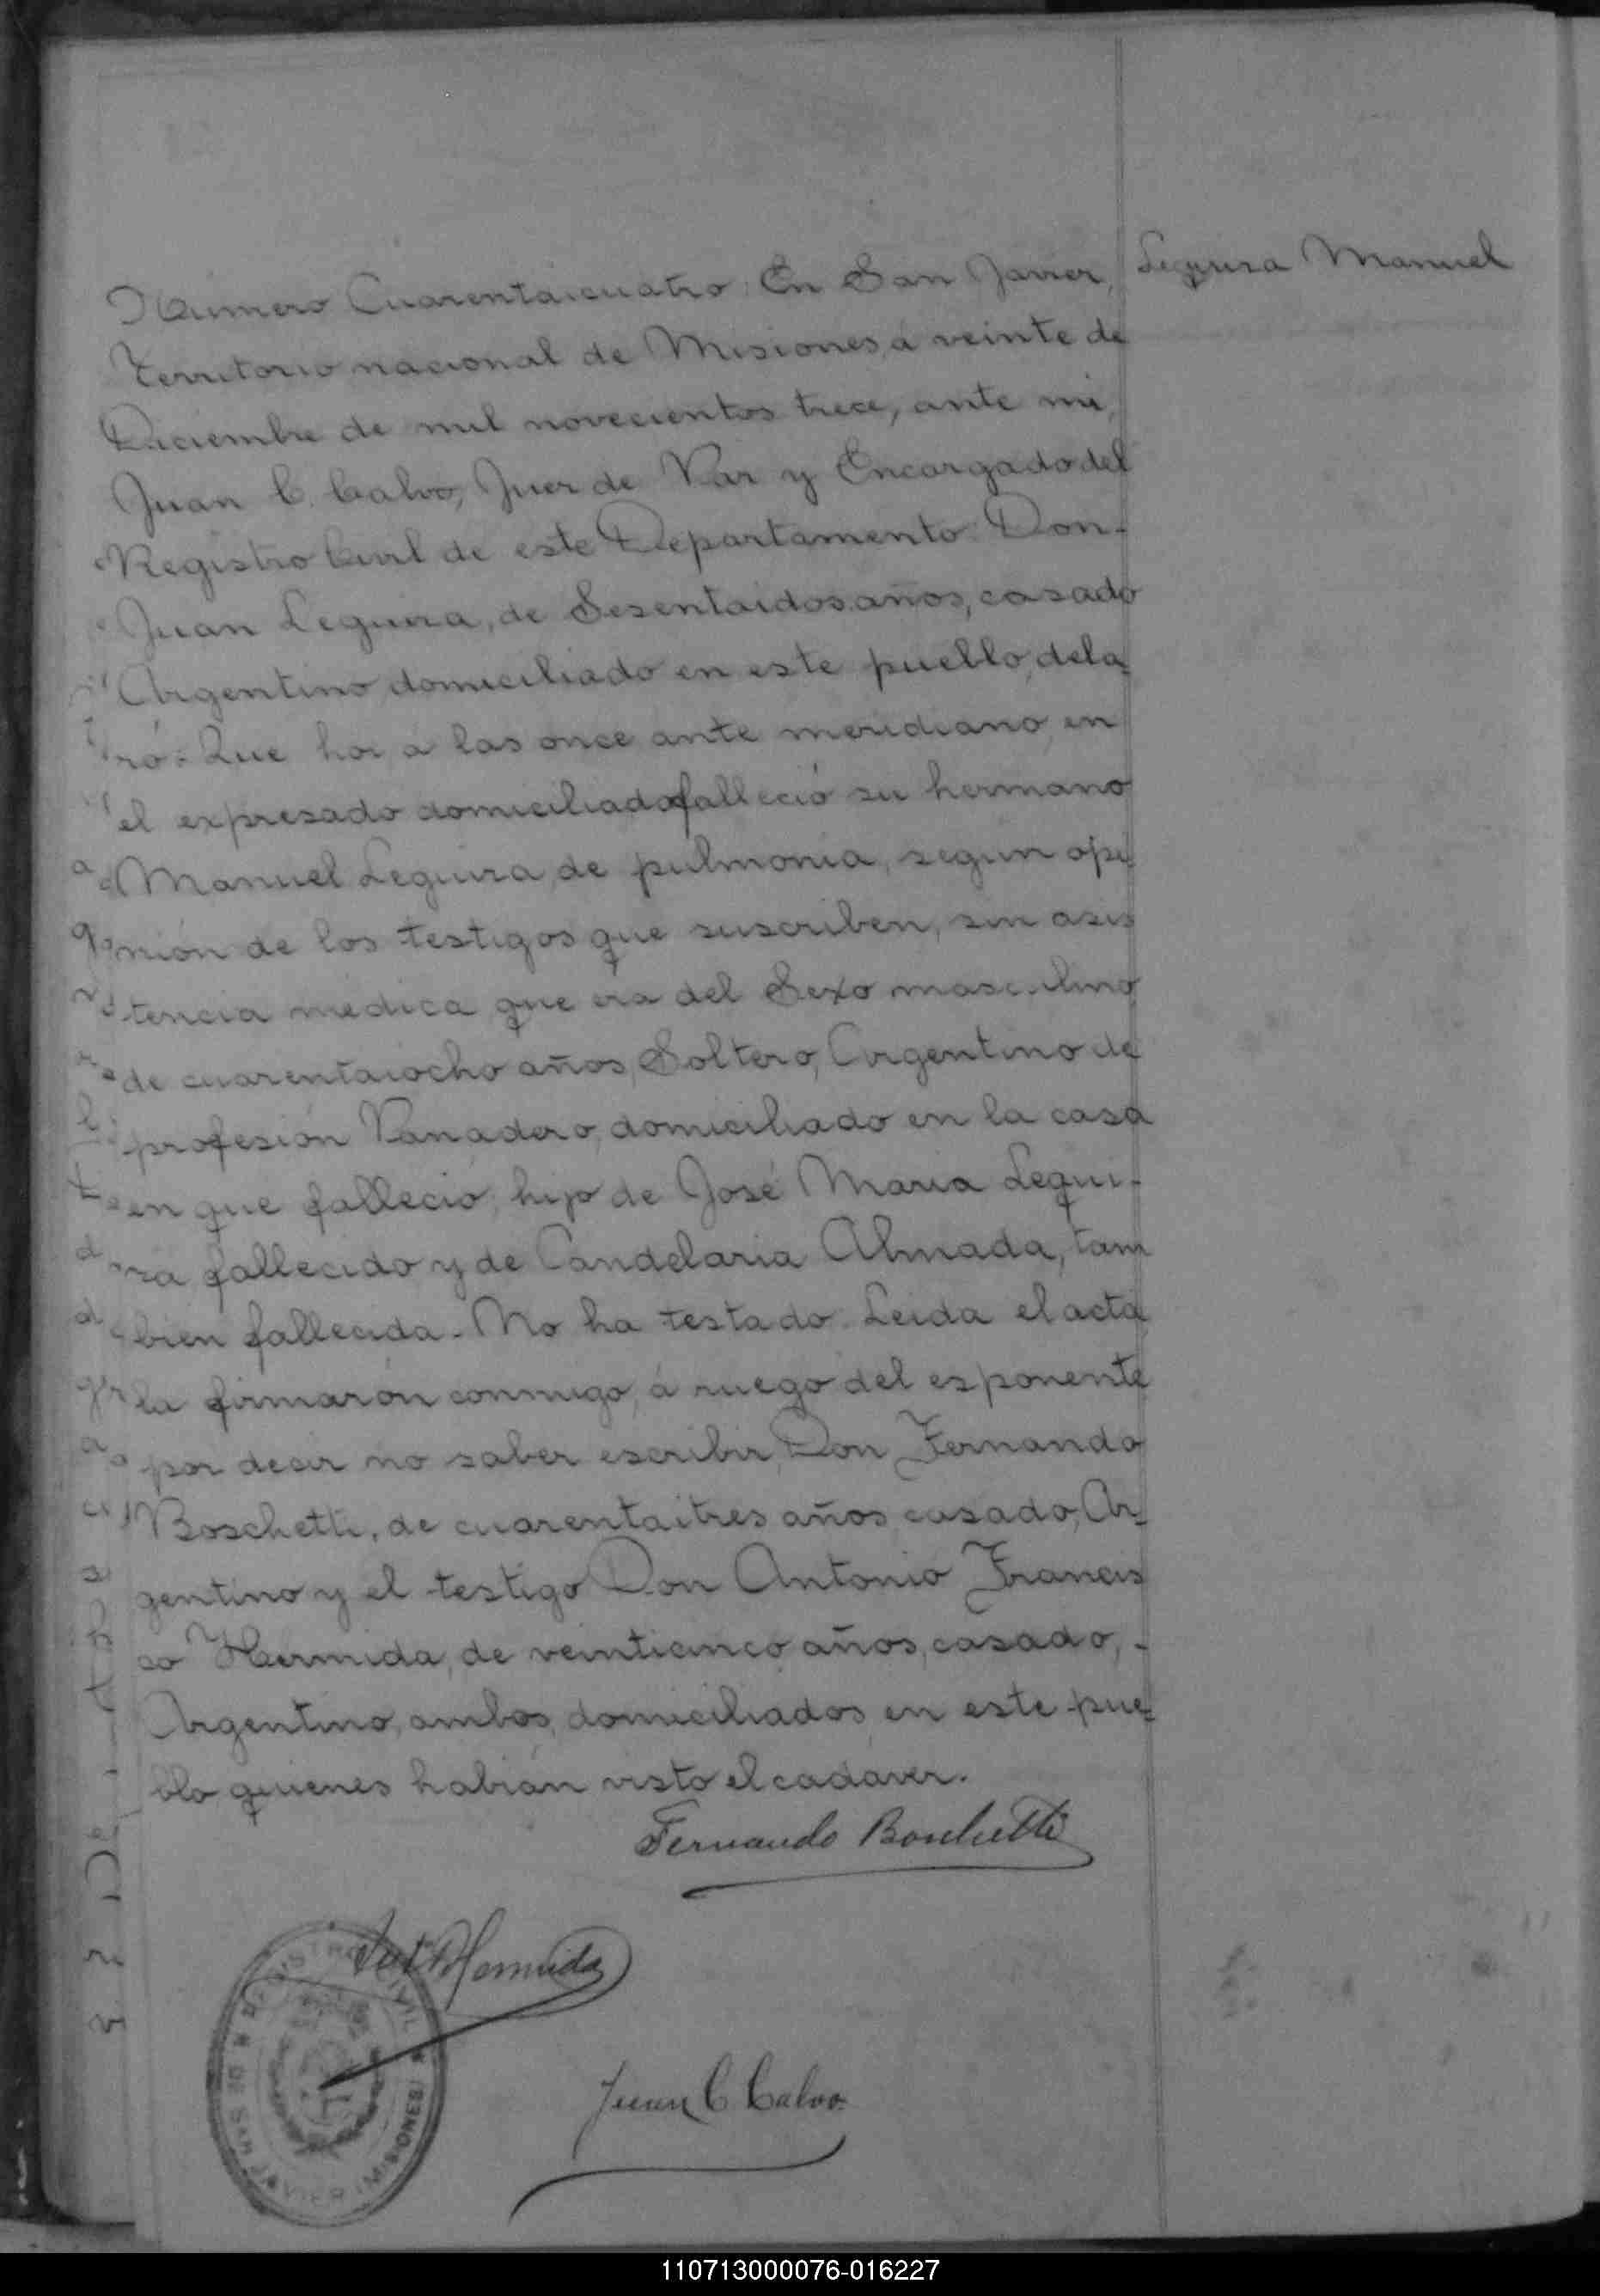 Leguira Manuel
Número Cuarentaicuatro: En San Javier,
Territorio nacional de Misiones, a veinte de
Diciembre de mil novecientos trece, ante mi,
Juan C. Calvo, Juez de Paz y Encargado del
Registro Civil de este Departamento: Don-
Juan Leguira, de Sesentaidos años, casado
Argentino domiciliado en este pueblo, decla
ró: Que hoi a las once ante meridiano, en
el expresado domiciliado falleció su hermano
Manuel Leguira, de pulmonia, segun opi
nión de los testigos que suscriben, sin asis
tencia medica, que era del Sexo masculino,
de cuarentaiocho años, Soltero, Argentino de
profesión Panadero, domiciliado en la casa
en que falleció, hijo de José Maria Legui-
ra fallecido y de Candelaria Almada, tam
bien fallecida. No ha testado. Leida el acta
la firmarón conmigo, á ruego del esponente
por decir no saber escribir, Don Fernando
Boschetti, de cuarentaitres años, casado, Ar-
gentino y el testigo Don Antonio Francis
co Hermida, de veinticinco años, casado, -
Argentino, ambos, domiciliados en este pue-
blo quienes habián visto el cadaver.
Fernando Boschetti
Ant F Hermida
REGISTRO CIVIL
DE SAN JAVIER (MISIONES)
Juan C Calvo
110713000076-016227